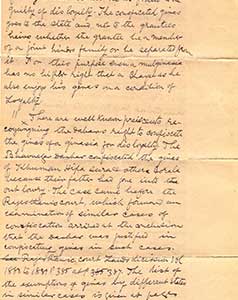 guilty of disloyalty. The confiscated ginas
goes to the State and not to the grantees
heirs whether the grantee be a member
of a joint hindu family or be separate from
it. For this purpose even a mulginasia
has no higher right than a Charad as he
also enjoy his ginas on a condition of
loyalty.
There are well known precedents re-
cognizing the Sabans right to confiscate
the ginas of a ginasia for disloyalty. The
Bhavnagar confiscated the ginas
of Khuman Hipa others
because their father had gone into the
outlawry. The case came before the
Rajasthanic court, which forward an
examination of similar cases of
confiscation arrived at the conclusion
that the was justified in
confiscating ginas in such cases.
Rajasthanic court
1885 to P 385 at p 385-387. The list of
the assumptions of ginas by different states
in similar cases is given at